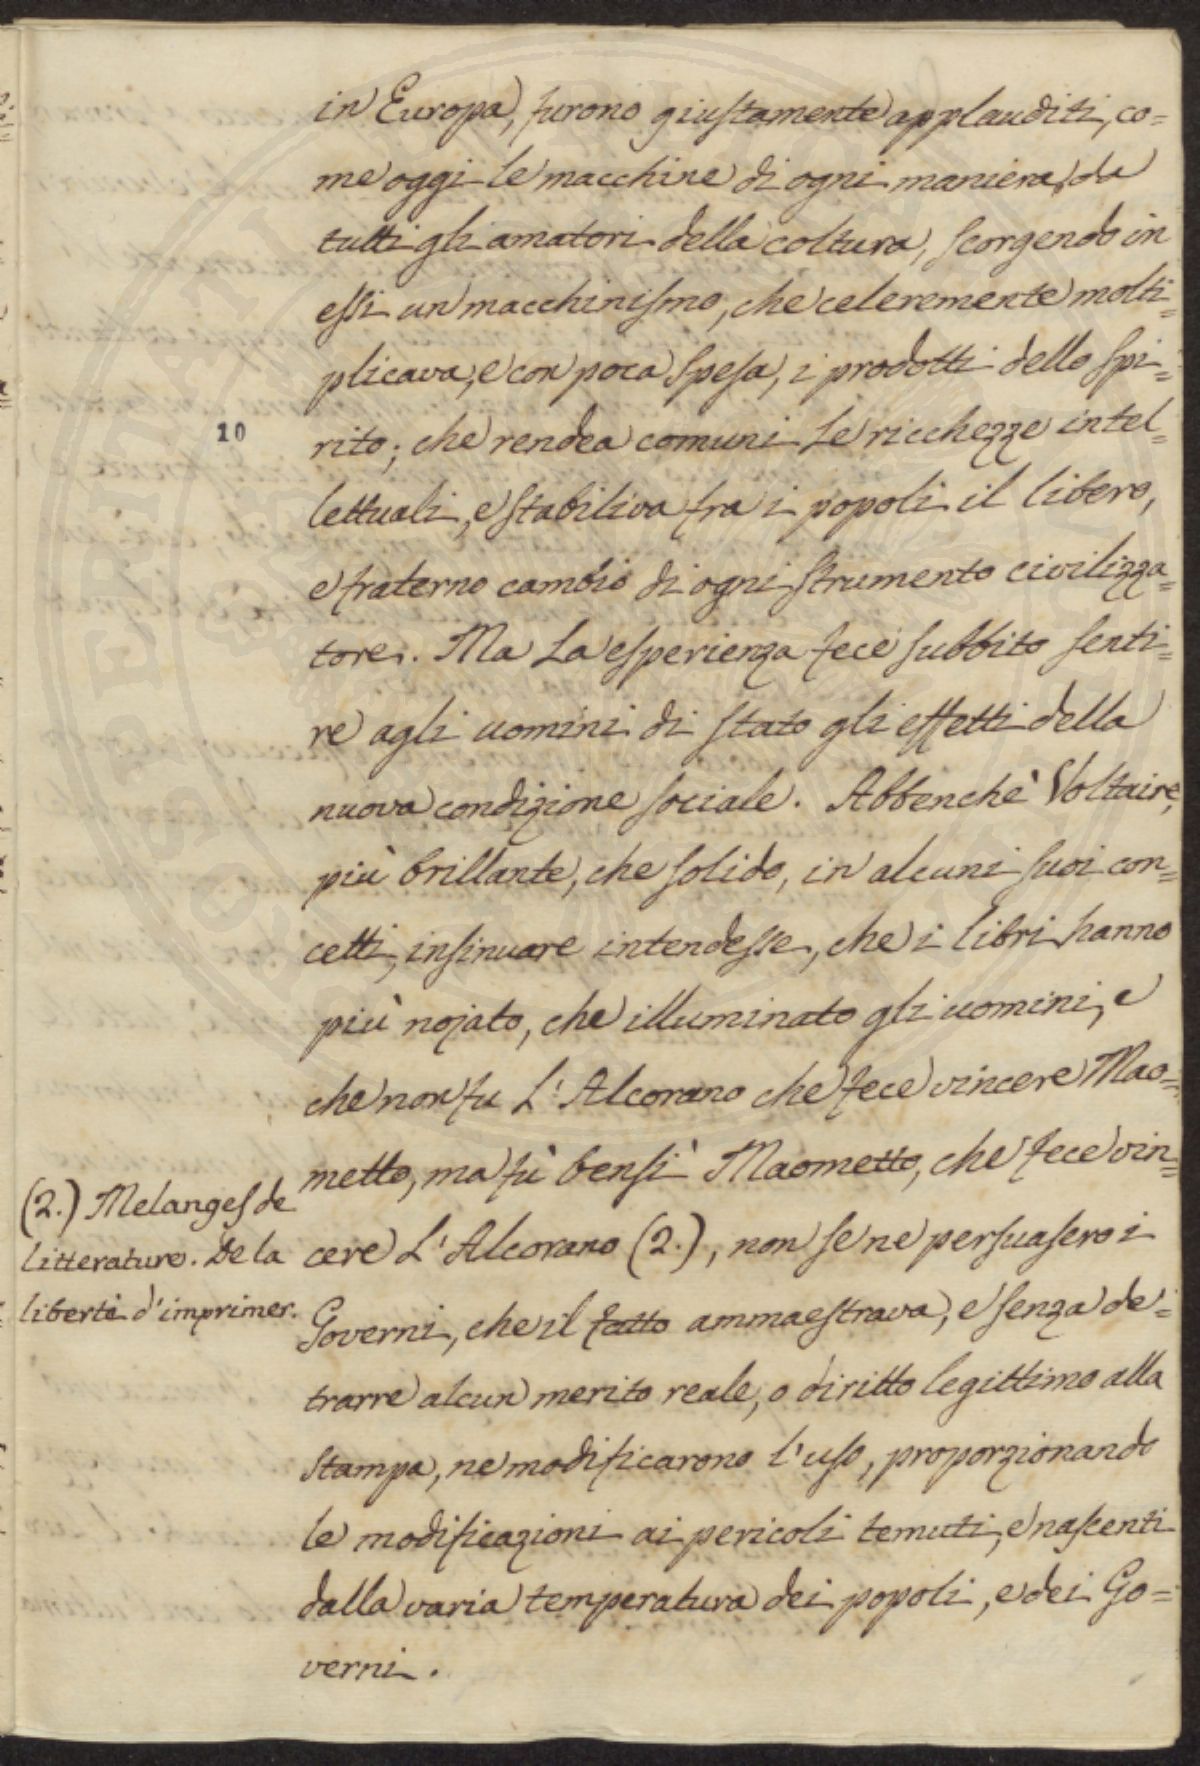 in Europa, furono giustamente applauditi, co=
me oggi le macchine di ogni maniera, da
tutti gli amatori della coltura, scorgendo in
essi un macchinismo, che celeremente molti=
plicava, e con poca spesa, i prodotti dello spi=
10
rito; che rendea comuni le ricchezze intel=
lettuali, e stabiliva fra i popoli il libero,
e fraterno cambio di ogni strumento civilizza=
tore. Ma la esperienza fece subbito senti=
re agli uomini di stato gli effetti della
nuova condizione sociale. Abbenchè Voltaire,
più brillante, che solido, in alcuni suoi con=
cetti, insinuare intendesse, che i libri hanno
più nojato, che illuminato gli uomini, e
che non fu l'Alcorano che fece vincere Mao=
metto, ma fù bensì Maometto, che fece vin=
cere l'Alcorano (2.), non se ne persuasero i
Governi, che il fatto ammaestrava, e senza de=
trarre alcun merito reale, o diritto legittimo alla
stampa, ne modificarono l'uso, proporzionando
le modificazioni ai pericoli temuti, e nascenti
dalla varia temperatura dei popoli, e dei Go=
verni.
(2.) Melanges de
litterature. De la
liberté d'imprimer.